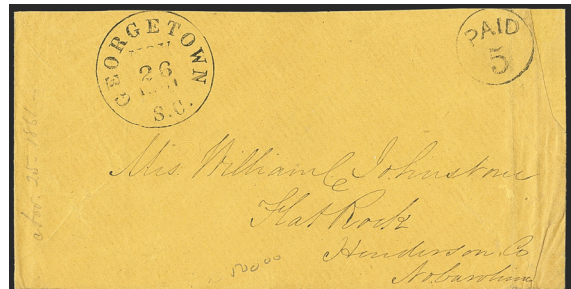 GEORGETOWN
NOV
26
1861
S.C.
PAID
5
Mrs. William C. Johnstone
Flat Rock
Henderson Co
No. Carolina
Nov. 25. 1861